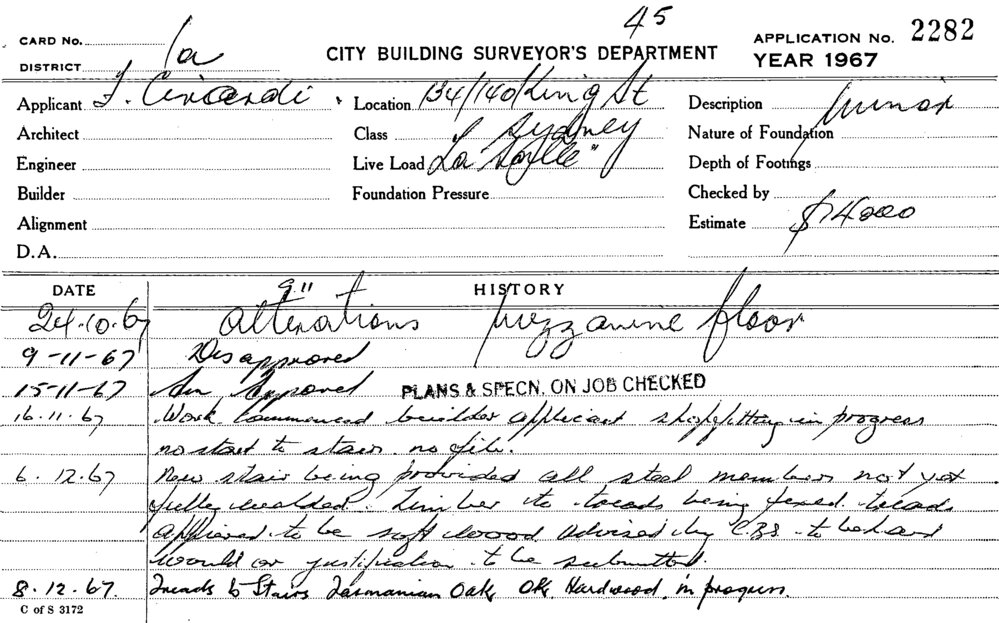 45
CARD No.
DISTRICT 1a
CITY BUILDING SURVEYOR'S DEPARTMENT
APPLICATION No. 2282
YEAR 1967
Applicant
Location 134/140 King St
Description Minor
Architect
Class Sydney
Nature of Foundation
Engineer
Live Load "La
Depth of Footings
Builder
Foundation Pressure
Checked by
Alignment
Estimate $14000
D.A.
DATE
HISTORY
24.10.67 alterations mezzanine floor
9-11-67 Disapproved
15-11-67 PLANS & SPECN. ON JOB CHECKED
16.11.67 Work Commenced builder applicant shopfitting in progress
no start to stair. no file.
6.12.67 New stair being provided all steel members not yet
fully welded. Timber to treads being fixed treads
to be soft wood advised by C.B.S. to be hard
would or justification to be submitted.
8.12.67. Treads to Stairs Tasmanian Oak, OK. Hardwood, in progress.
C of S 3172